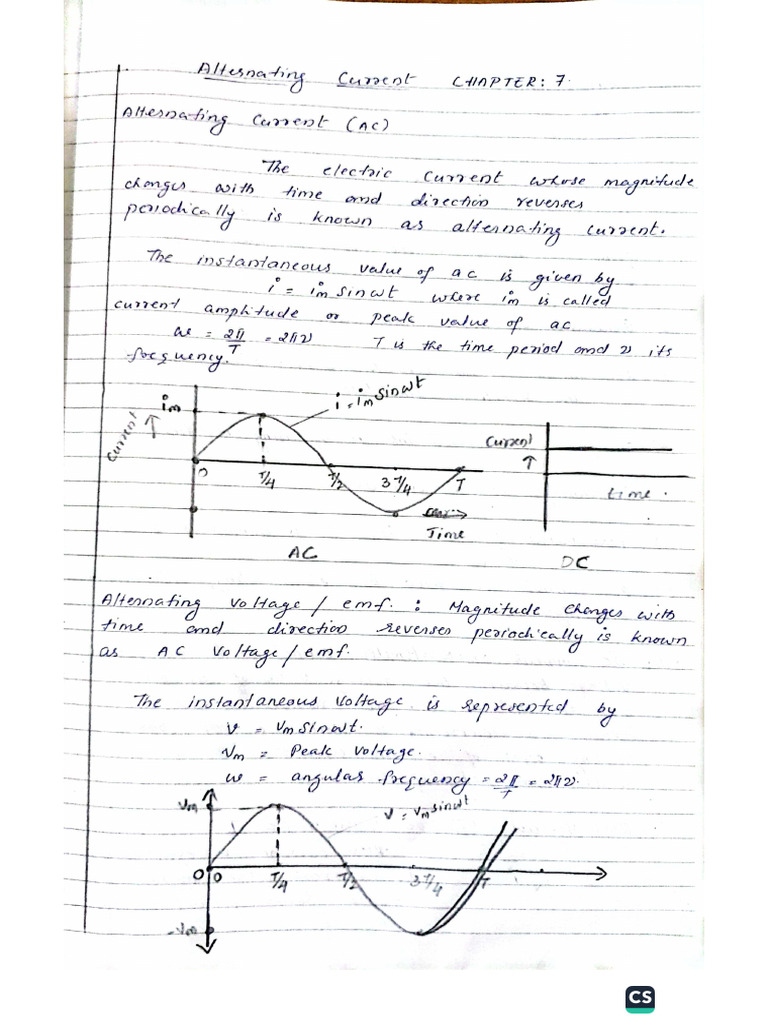 Alternating Current CHAPTER: 7.
Alternating Current (AC)
The electric current whose magnitude
changes with time and direction reverses
periodically is known as alternating current.
The instantaneous value of ac is given by
i = im sinωt where im is called
current amplitude or peak value of ac
ω = 2π/T = 2πν T is the time period and ν its
frequency.
im
i = im sinωt
Current
0 T/4 T/2 3T/4 T
Time
AC
Current
time.
DC
Alternating voltage / emf. : Magnitude changes with
time and direction reverses periodically is known
as AC voltage/emf.
The instantaneous voltage is represented by
v = vm sinωt.
vm = Peak voltage.
ω = angular frequency = 2π/T = 2πν.
vm
v = vm sinωt
0 0 T/4 T/2 3T/4 T
-vm
CS